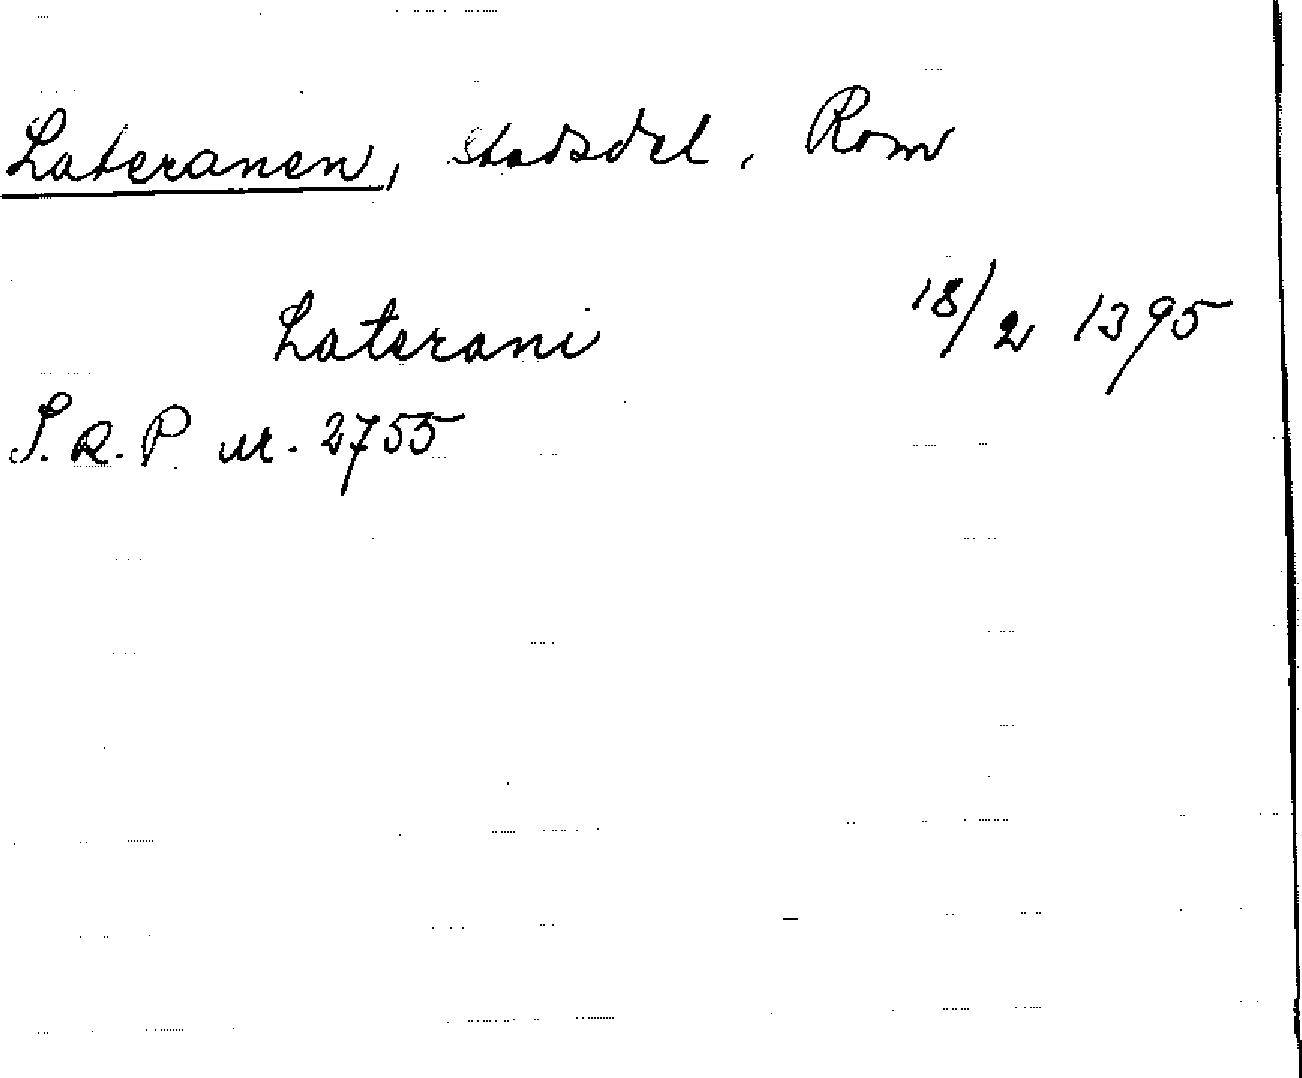 Lateranen, stadsdel, Rom
Laterani 18/2 1395
S.R.P nr. 2755